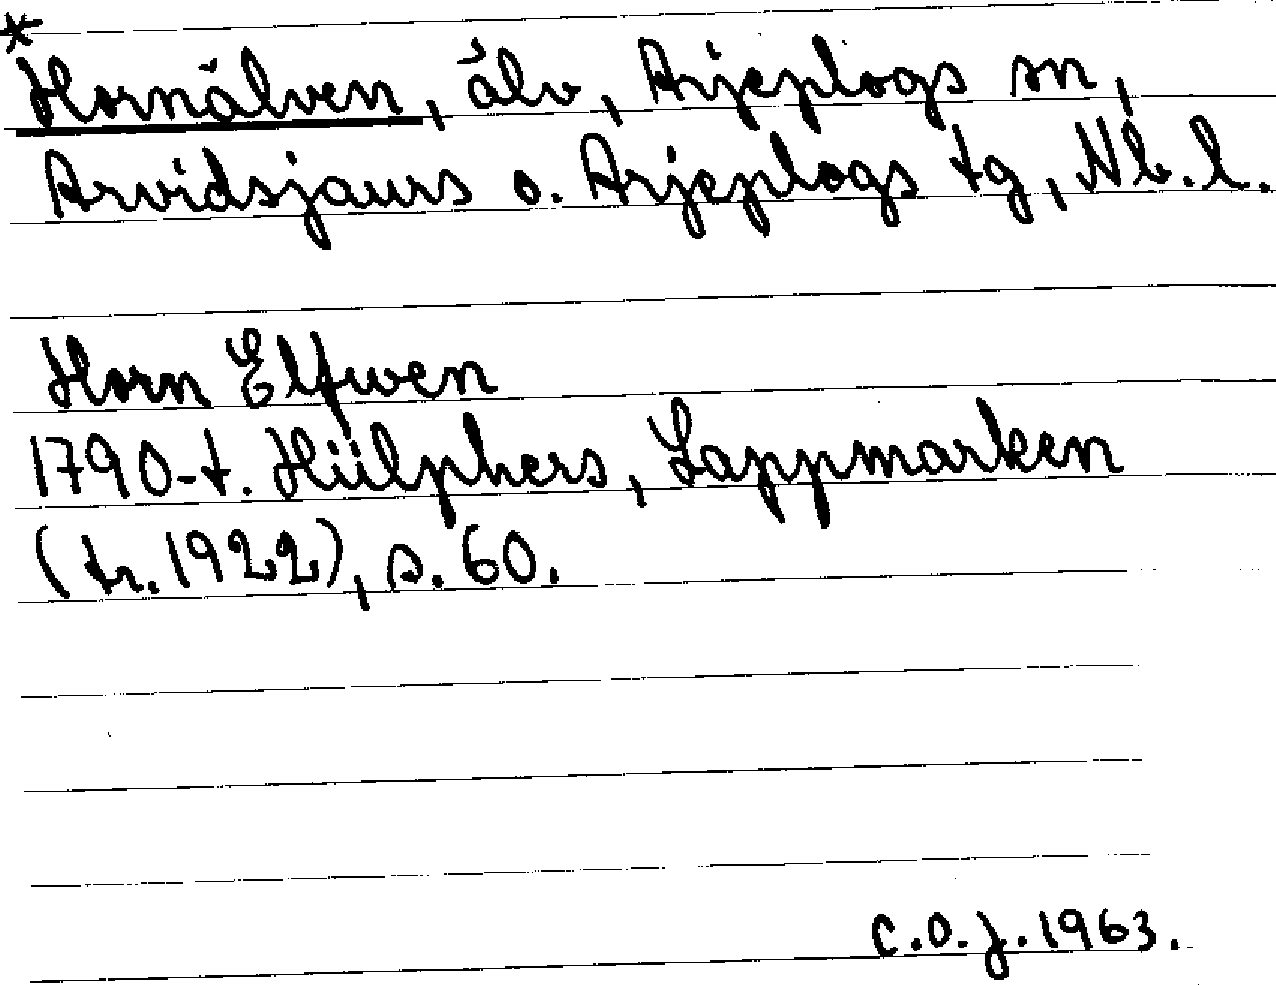 *
Hornälven, älv, Arjeplogs sn,
Arvidsjaurs o. Arjeplogs tg, Nb.l.
Horn Elfwen
1790-t. Hülphers, Lappmarken
(tr. 1922), s. 60.
C.O.J. 1963.